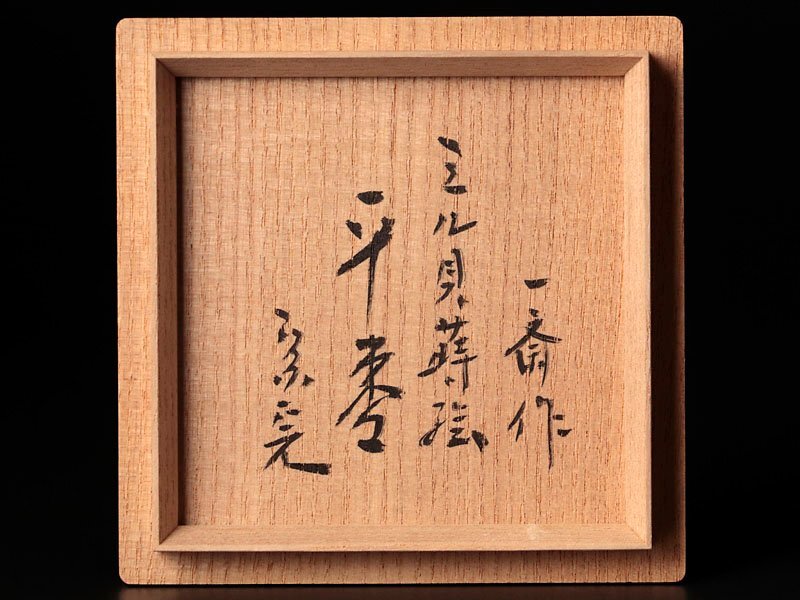 一斎作
ミル貝蒔絵
平棗
宗完